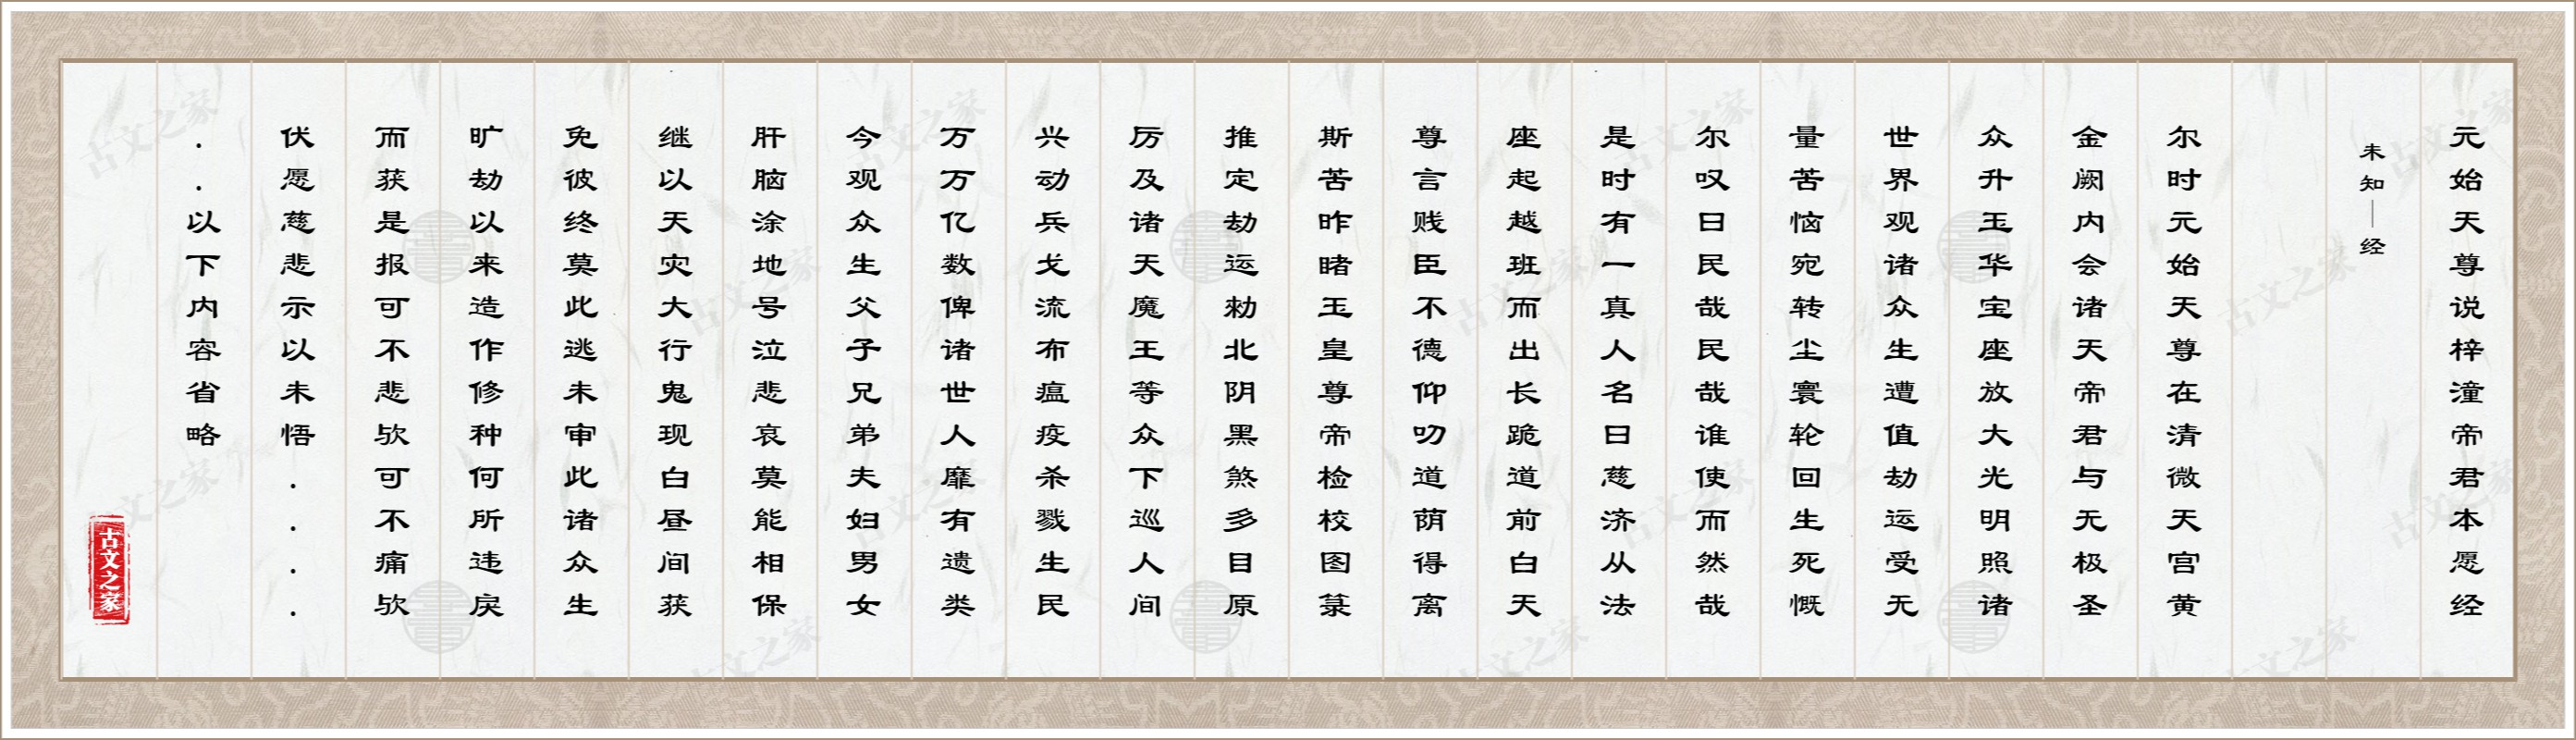 元始天尊说梓潼帝君本愿经
未知｜经
尔时元始天尊在清微天宫黄
金阙内会诸天帝君与无极圣
众升玉华宝座放大光明照诸
世界观诸众生遭值劫运受无
量苦恼宛转尘寰轮回生死慨
尔叹曰民哉民哉谁使而然哉
是时有一真人名曰慈济从法
座起越班而出长跪道前白天
尊言贱臣不德仰叨道荫得离
斯苦昨睹玉皇尊帝检校图箓
推定劫运勑北阴黑煞多目原
厉及诸天魔王等众下巡人间
兴动兵戈流布瘟疫杀戮生民
万万亿数俾诸世人靡有遗类
今观众生父子兄弟夫妇男女
肝脑涂地号泣悲哀莫能相保
继以天灾大行鬼现白昼间获
免彼终莫此逃未审此诸众生
旷劫以来造作修种何所违戾
而获是报可不悲欤可不痛欤
伏愿慈悲示以未悟....
..以下内容省略
古文之家